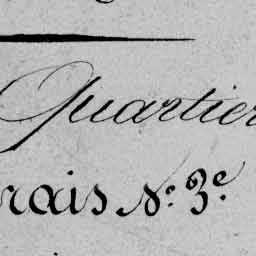 Quartier
rais N.o 3.e